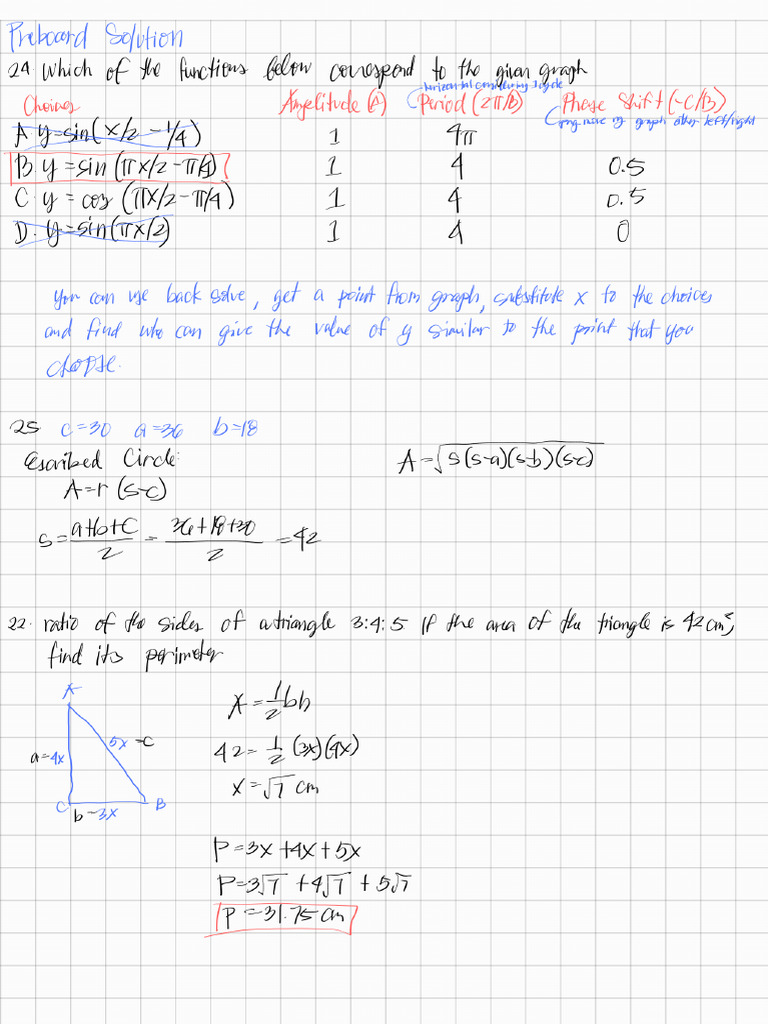 Preboard Solution
24 which of the functions below correspond to the given graph
Choices Amplitude (A) Period (2π/B) Phase Shift (-C/B)
A y=sin(x/2 -1/4) 1 4π
B. y=sin(πx/2-π/4) 1 4 0.5
C y = cos (πx/2-π/4) 1 4 0.5
D. y=sin(πx/2) 1 4 0
you can use back solve, get a point from graph, substitute x to the choices
and find who can give the value of y similar to the point that you
choose.
25 c=30 a=36 b=18
Escribed Circle:
A=r (s-c)
A=√s(s-a)(s-b)(s-c)
s=a+b+c/2 = 36+18+30/2 =42
22. ratio of the sides of a triangle 3:4:5 If the area of the triangle is 42cm²,
find its perimeter
A
a=4x
5x =c
C
b=3x
B
A=1/2bh
42=1/2 (3x)(4x)
x=√7 cm
P=3x+4x+5x
P=3√7 +4√7 +5√7
P=31.75 cm